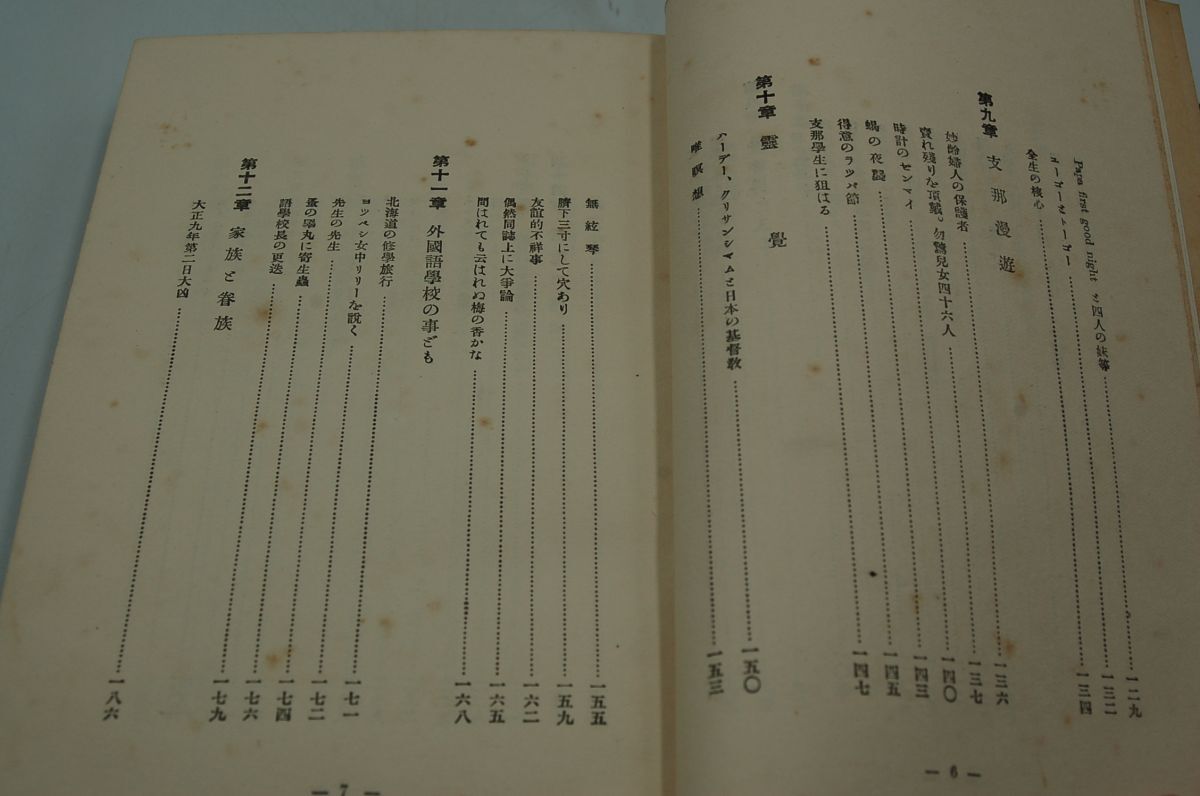 Papa first good night と四人の妹等……一二九
……一三二
全生の核心……一三四
第九章 支那漫遊……一三六
妙齢婦人の保護者……一三七
賣れ残りを頂戴。勿驚兒女四十六人……一四〇
時計のゼンマイ……一四三
蝎の夜襲……一四五
得意のラツパ節……一四七
支那學生に狙はる
第十章 靈覺
ハーデー、クリサンシマムと日本の基督教……一五〇
唯瞑想……一五三
— 6 —
無絃琴……一五五
臍下三寸にして穴あり……一五九
友誼的不祥事……一六二
偶然同誌上に大爭論……一六五
問はれても云はれぬ梅の香かな……一六八
第十一章 外國語學校の事ども
北海道の修學旅行……一七一
ヨツペシ女中リリーを說く……一七二
先生の先生……一七四
蚤の睾丸に寄生蟲……一七六
語學校長の更迭……一七九
第十二章 家族と眷族
大正九年第二日大凶……一八六
— 7 —